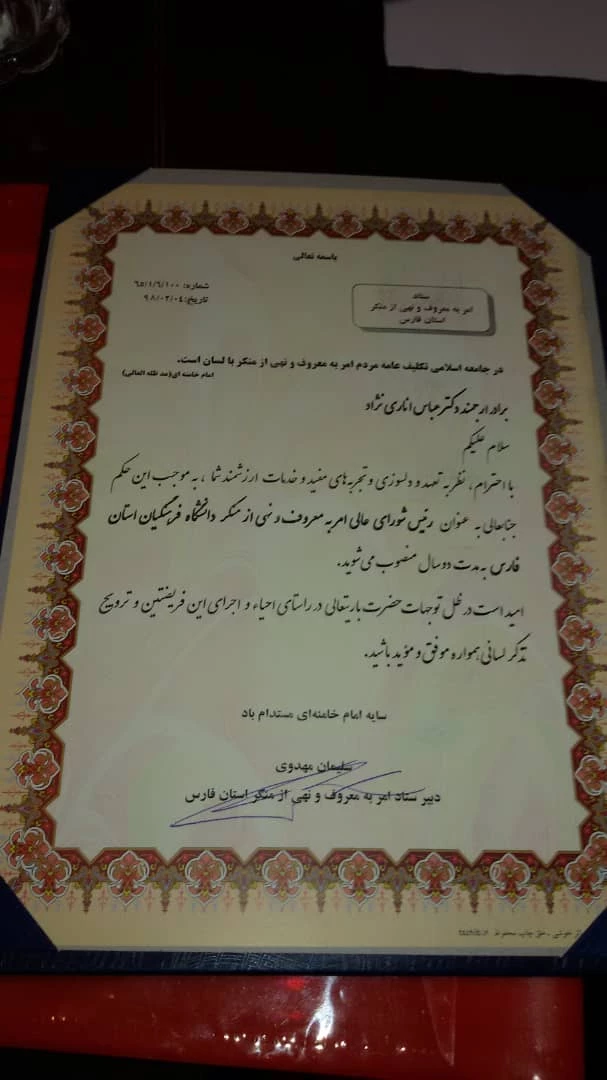 باسمه تعالی
شماره: ۶۵/۱/۶/۱۰۰
تاریخ: ۹۸/۰۲/۰۴
ستاد
امر به معروف و نهی از منکر
استان فارس
در جامعه اسلامی تکلیف عامه مردم امر به معروف و نهی از منکر با لسان است.
امام خامنه ای(مد ظله العالی)
برادر ارجمند دکتر عباس اناری نژاد
سلام علیکم
با احترام، نظر به تعهد و دلسوزی و تجربه های مفید و خدمات ارزشمند شما ، به موجب این حکم
جنابعالی به عنوان رئیس شورای عالی امر به معروف و نهی از منکر دانشگاه فرهنگیان استان
فارس به مدت دو سال منصوب می شوید.
امید است در ظل توجهات حضرت باریتعالی در راستای احیاء و اجرای این فریضتین و ترویج
تذکر لسانی همواره موفق و مؤید باشید.
سایه امام خامنه‌ای مستدام باد
سلیمان مهدوی
دبیر ستاد امر به معروف و نهی از منکر استان فارس
حق چاپ محفوظ